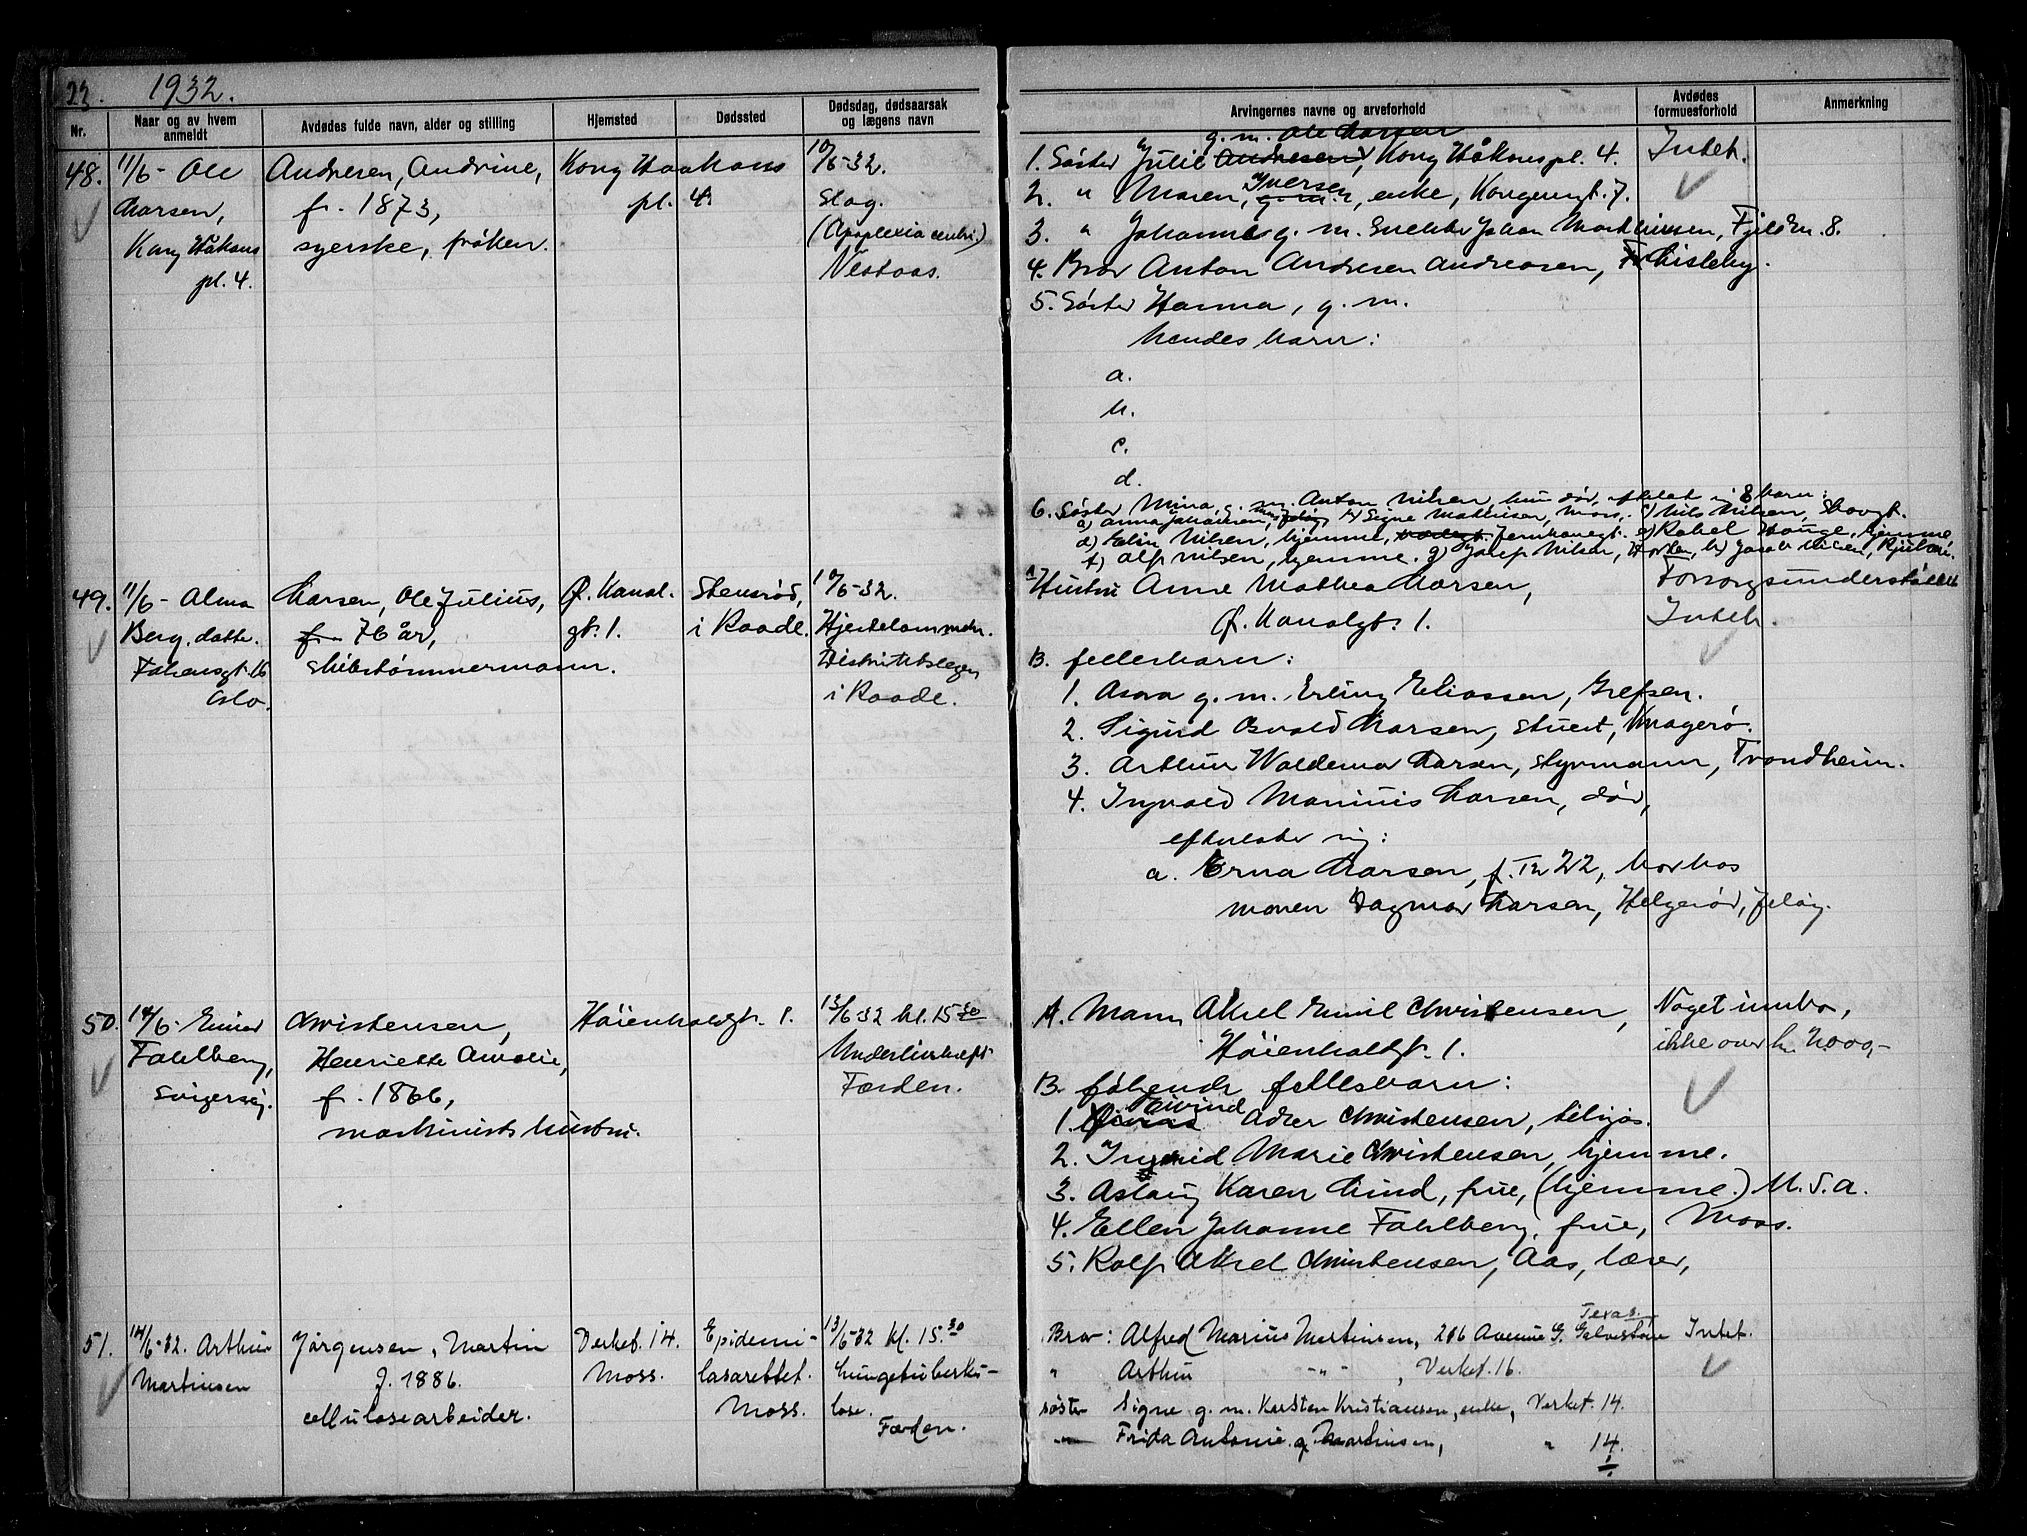 22. 1932.
Nr.
Naar og av hvem anmeldt
Avdødes fulde navn, alder og stilling
Hjemsted
Dødssted
Dødsdag, dødsaarsak og lægens navn
Arvingernes navne og arveforhold
Avdødes formuesforhold
Anmerkning
48. 11/6 - Ole
Larsen,
Kong Håkons
pl. 4.
Andresen, Andrine,
f. 1873,
syerske, frøken.
Kong Haakons
pl. 4.
10/6-32.
Slag.
(Apoplexia cerebri.)
g. m. Ole Larsen
1. Søster Julie Andresen, Kong Håkons pl. 4.
2. " Maren, Iversen, enke, Kongensgt. 7.
3. " Johanne g. m. Snekker Johan Martinsen, Fjeldvn. 8.
4. Bror Anton Andresen Andreasen, Lisleby.
5. Søster Hanna, g. m.
hendes barn:
a.
b.
c.
d.
6. Søster Mina, g. m. Anton Nilsen, hun død, efterlat sig 8 barn:
a) Anna Johansen, Jeløy, b) Signe Mathisen, Moss, c) Nils Nilsen, Skovgt.
d) Elin Nilsen, hjemme, Jernbanegt. e) Rakel Hauge, hjemme,
f) Alf Nilsen, hjemme. g) Josef Nilsen, Horten, h) Jacob Nilsen,
Intet.
49. 11/6 - Alma
Berg, datter.
gt. 16
Oslo.
Larsen, Ole Julius,
f. 76 år,
skibstømmermann.
Ø. Kanal-
gt. 1.
Stensrød,
i Raade.
10/6-32.
Hjertelammelse.
Distriktslægen
i Raade.
A Hustru Anne Mathea Larsen,
Ø. Kanalgt. 1.
B. fellesbarn:
1. Asora g. m. Erling Eliassen, Grefsen.
2. Sigurd Osvald Larsen, stuert, Knagerø.
3. Arthur Waldemar Larsen, styrmann, Trondheim.
4. Ingvald Marinius Larsen, død,
efterlater sig:
a. Erna Larsen, f. 22, bor hos
moren Dagmar Larsen, Helgerød, Jeløy.
Forsorgsunderstøttet
Intet.
50. 14/6 - Einar
Fahlberg,
svigersøn.
Christensen,
Henriette Amalie,
f. 1866,
maskinists hustru.
Høienholdgt. 1.
13/6-32 kl. 15 30
Underlivskreft
Førden.
A. Mann Aksel Emil Christensen,
Høienholdgt. 1.
B. følgende fellesbarn:
1. Eivind Adler Christensen, tilsjøs.
2. Ingrid Marie Christensen, hjemme.
3. Aslaug Karen Lind, frue, (hjemme.) U.S.A.
4. Ellen Johanne Fahlberg, frue, Moss.
5. Rolf Aksel Christensen, Aas, lærer,
Noget innbo,
ikke over kr. 2000,-
51. 14/6-32. Arthur
Martinsen
Jørgensen, Martin
f. 1886.
cellulosearbeider.
Verket. 14.
Moss.
Epidemi-
lasarettet.
Moss.
13/6-32 kl. 15.30
Lungetuberku-
lose.
Førden.
Texas.
Bror: Alfred Marius Martinsen, 206 Avenue G. Galveston
" Arthur " " , Verket. 16.
søster Signe g. m. Karsten Kristiansen, enke, Verket. 14.
" Frida Antonie g. Martinsen, " 14.
Intet.